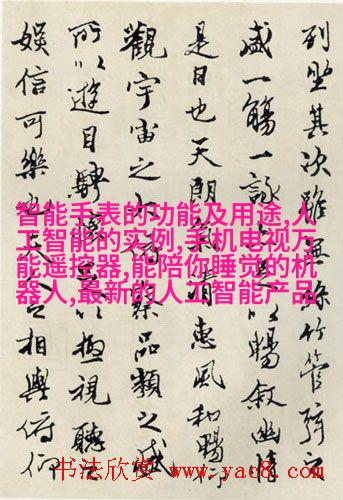 列坐其次雖無絲竹管弦之
盛一觴一詠亦足以暢敘幽情
是日也天朗氣清惠風和暢仰
觀宇宙之大俯察品類之盛
所以遊目騁懷足以極視聽之
娛信可樂也夫人之相與俯仰
智能手表的功能及用途,人
工智能的实例,手机电视万
能遥控器,能陪你睡觉的机
器人,最新的人工智能产品
书法欣赏 www.yac8.com